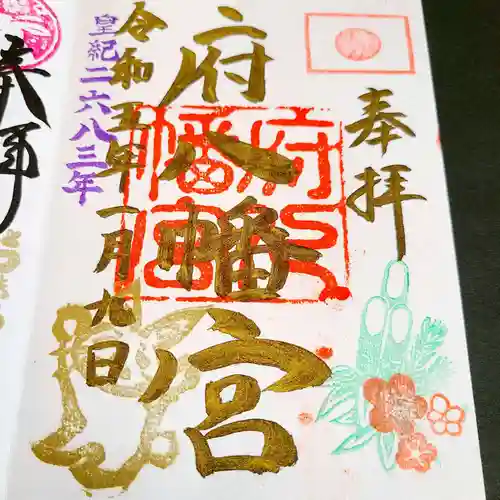 奉拝
二府八幡宮
府八幡宮
令和五年一月九日
皇紀二六八三年
奉拝